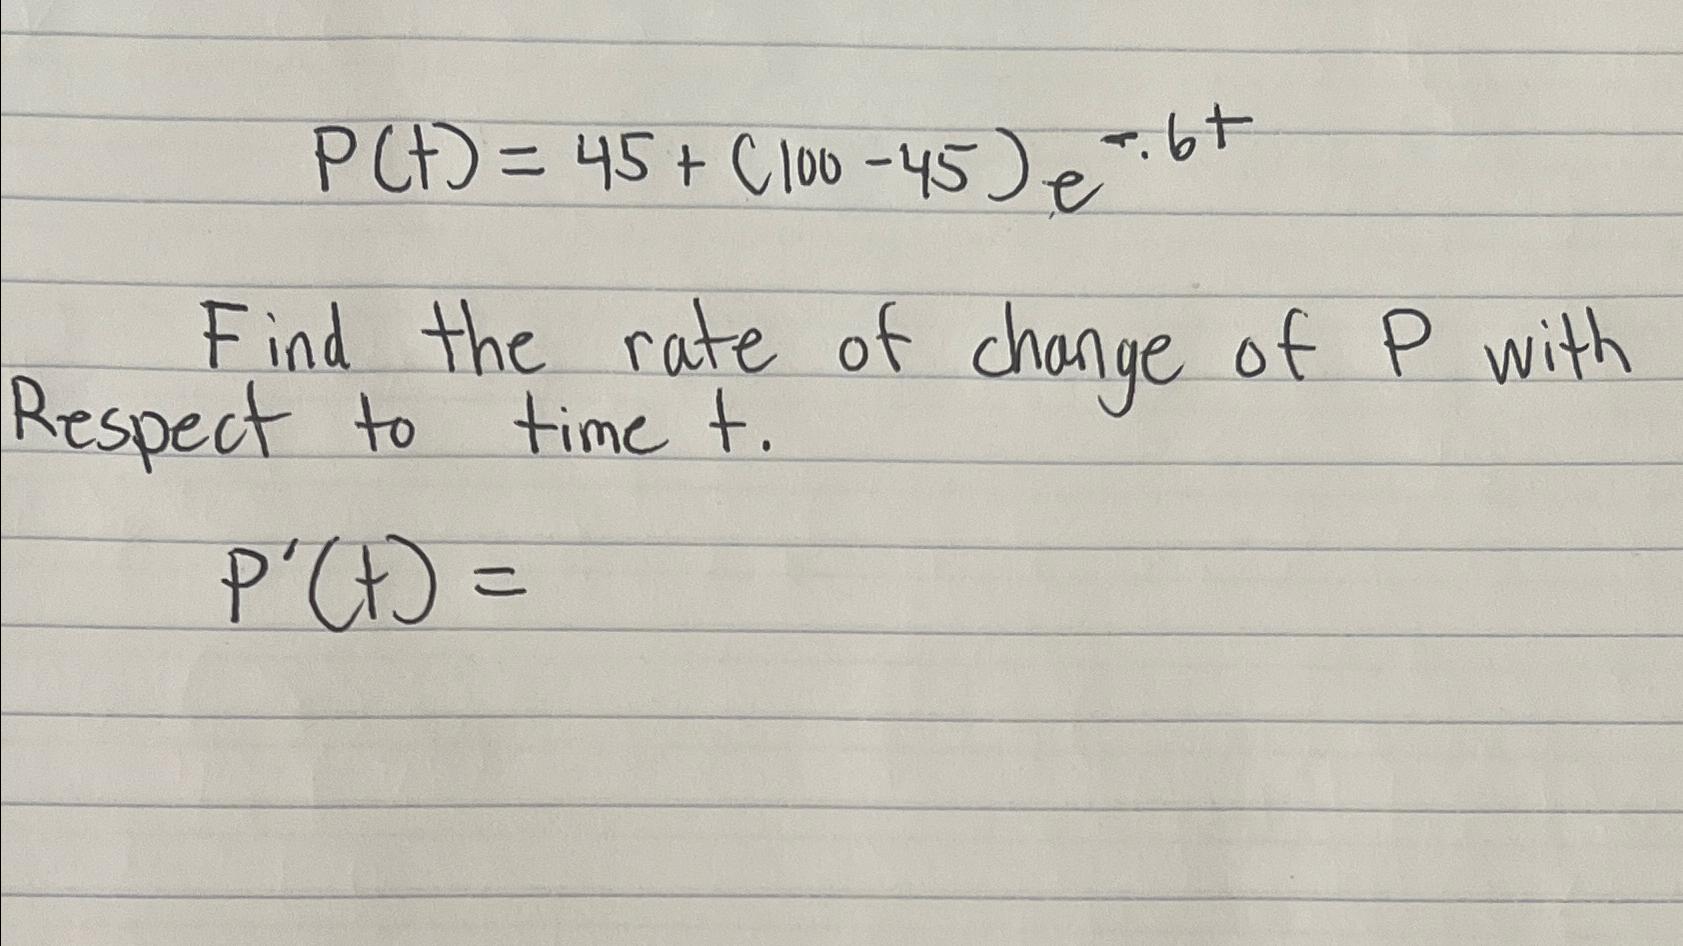 P(t) = 45 + (100 - 45) e^{-.6t}
Find the rate of change of P with
Respect to time t.
P'(t) =